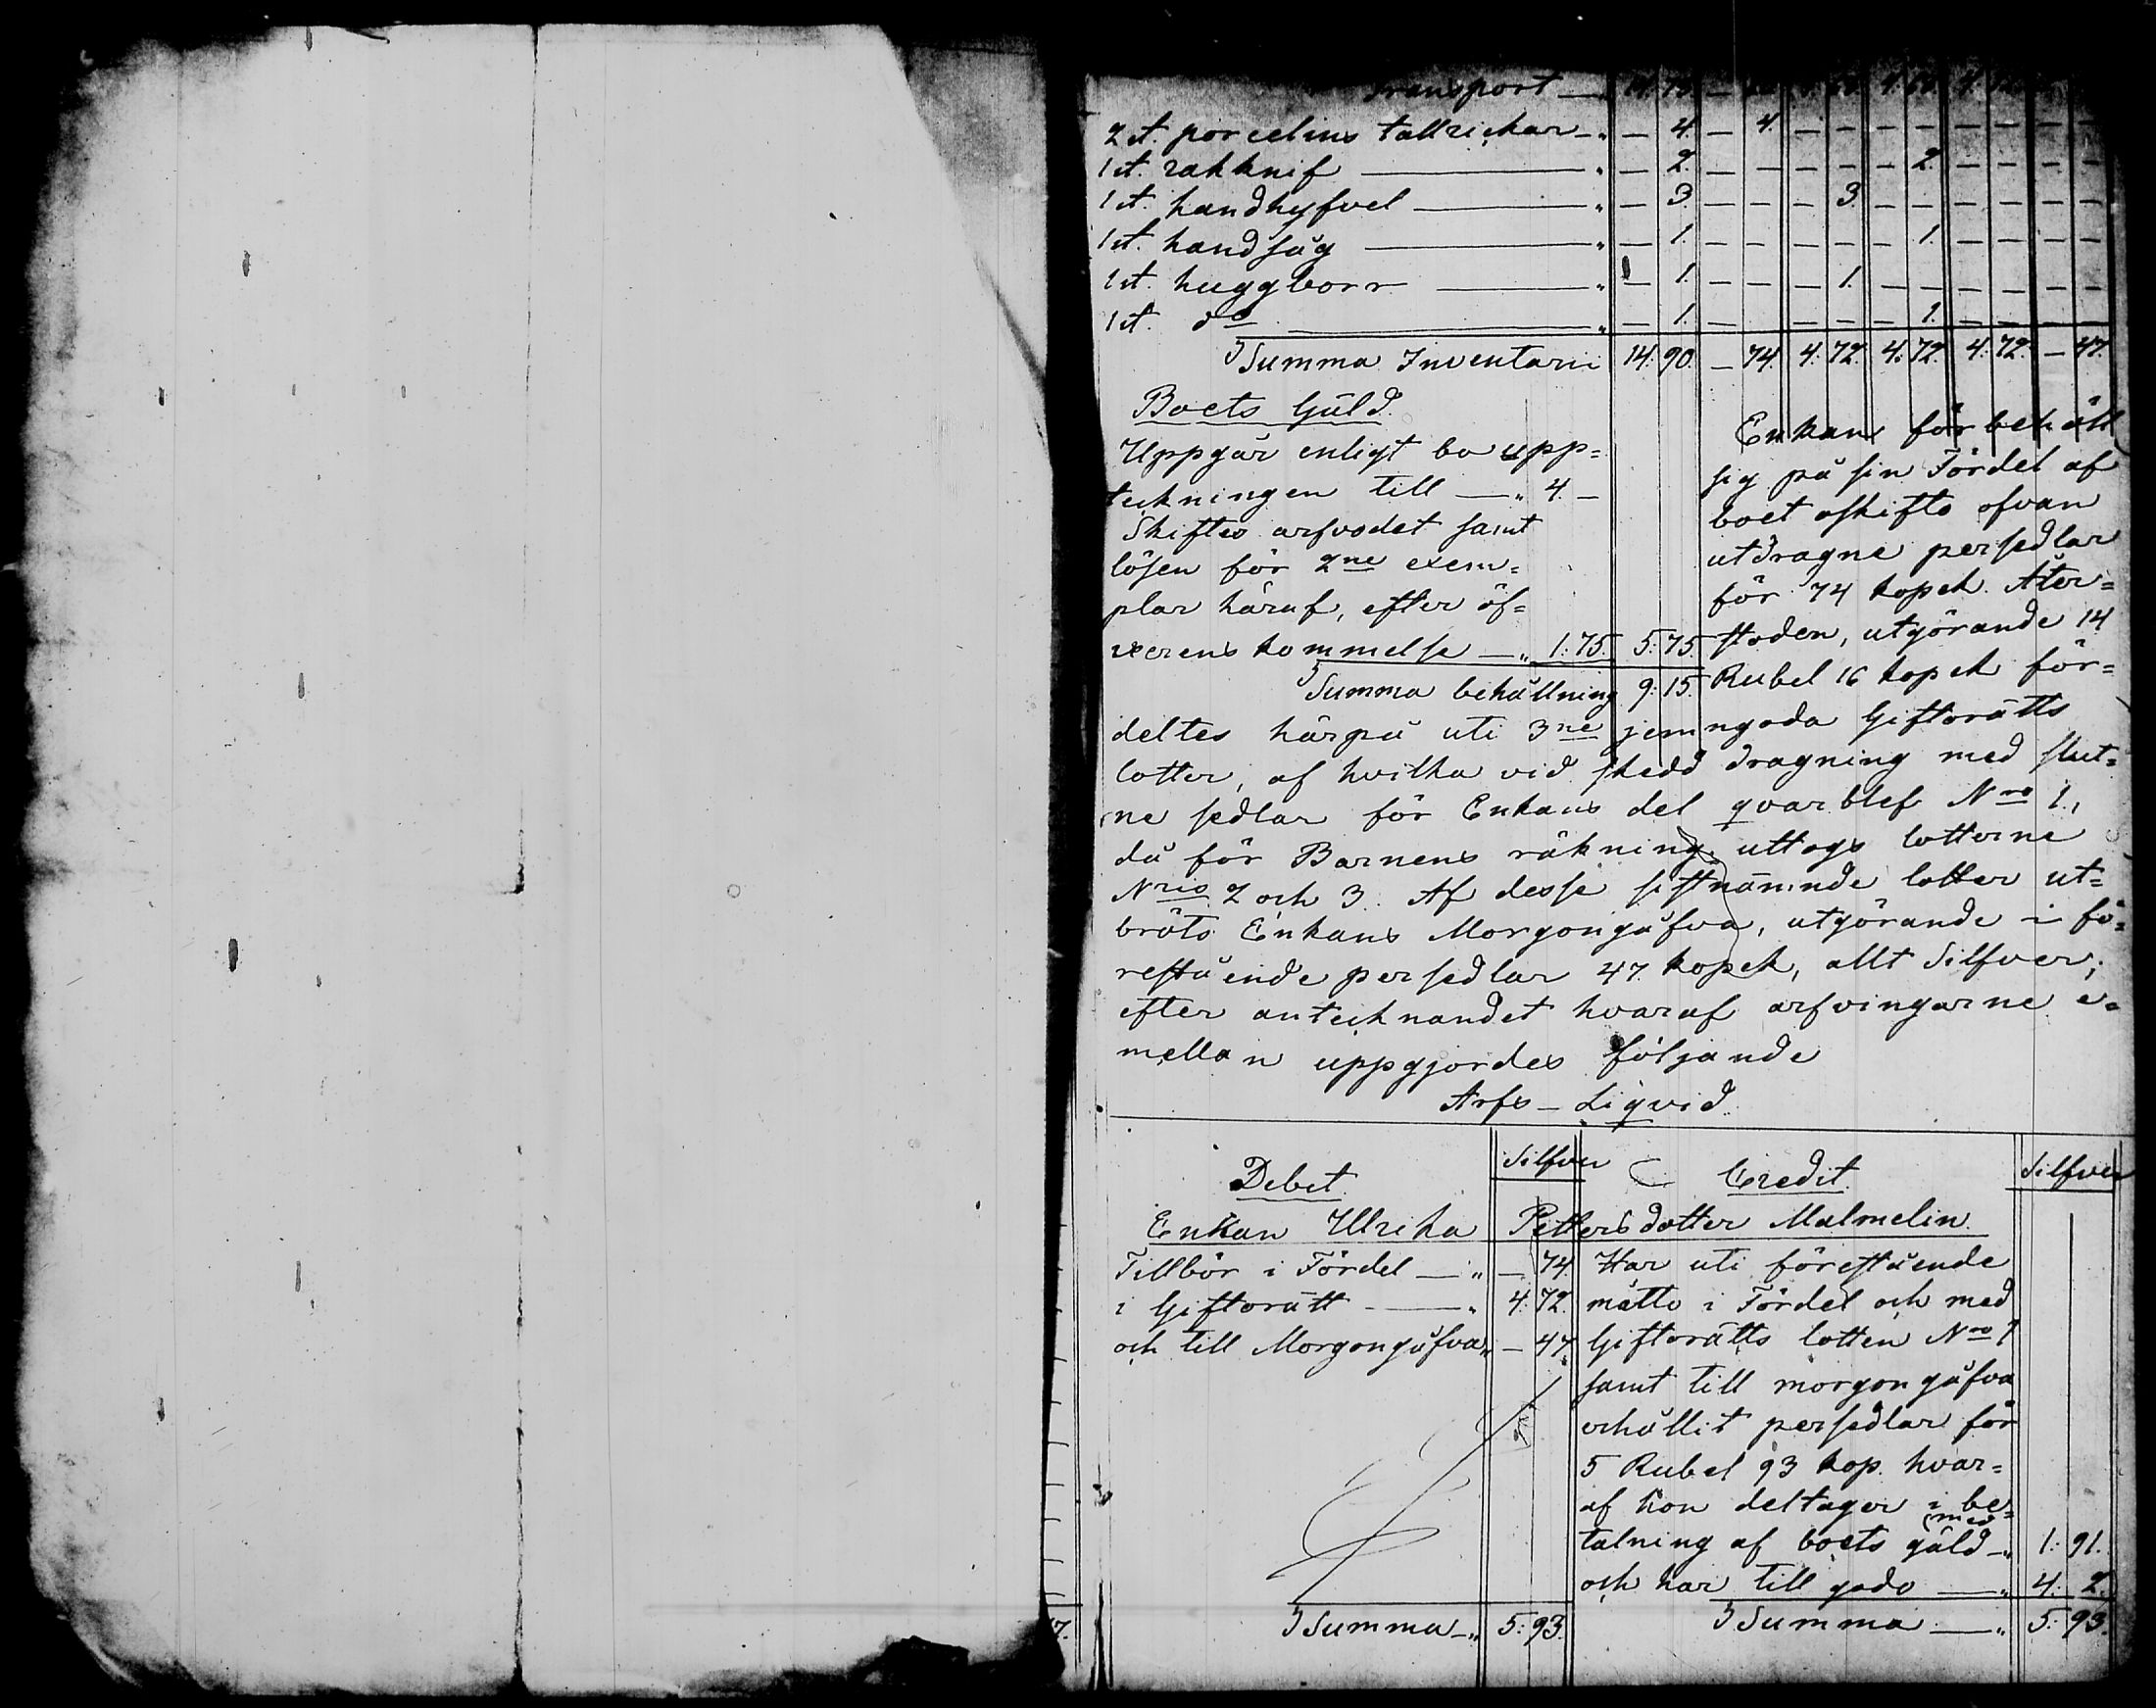 Transport — „
2 st. porcelins tallrickar — „ — 4. — 4. — — — — — — — —
1 st. rakknif — „ — 2. — — — — — 2. — — — —
1 st. handhyfvel — „ — 3. — — — 3. — — — — — —
1 st. handsåg — „ — 1. — — — — — 1. — — — —
1 st. huggborr — „ — 1. — — — 1. — — — — — —
1 st. do — „ — 1. — — — — 1. — — — —
Summa Inventarii 14. 90. — 74. 4. 72. 4. 72. 4. 72. — 47.
Boets Gäld.
Uppgår enligt bo upp=
teckningen till — „ 4. —
Skiftes arfvodet samt
lösen för 2ne exem=
plar häraf, efter öf=
verenskommelse — „ 1: 75. 5: 75.
Summa behållning 9: 15.
Enkan förbehöll
sig på sin Fördel af
boet oskifto ofvan
utdragne persedlar
för 74 kopek. Åter=
stoden, utgörande 14
Rubel 16 kopek för=
deltes härpå uti 3ne jemngoda Giftorätts
lotter, af hvilka vid skedd dragning med slut=
ne sedlar för Enkans del qvarblef Nro 1.,
då för Barnens räkning uttogs lotterne
Nris 2 och 3. Af desse sistnämnde lotter ut=
bröts Enkans Morgongåfva, utgörande i fö=
restående persedlar 47 kopek, allt Silfver;
efter antecknandet hvaraf arfvingarne e=
mellan uppgjordes följande
Arfs-Liqvid.
Debet. Silfver Credit. Silfver
Enkan Ulrika Pettersdotter Malmelin.
Tillbör i Fördel — „ — 74.
i Giftorätt — „ 4: 72.
och till Morgongåfva „ — 47.
Summa — „ 5: 93.
Har uti förestående
måtto i Fördel och med
Giftorätts lotten Nro 1
samt till morgongåfva
erhållit persedlar för
5 Rubel 93 kop. hvar=
af hon deltager i be=
(med
talning af boets gäld — „ 1: 91.
och har till godo — „ 4: 2.
Summa — „ 5: 93.
7.